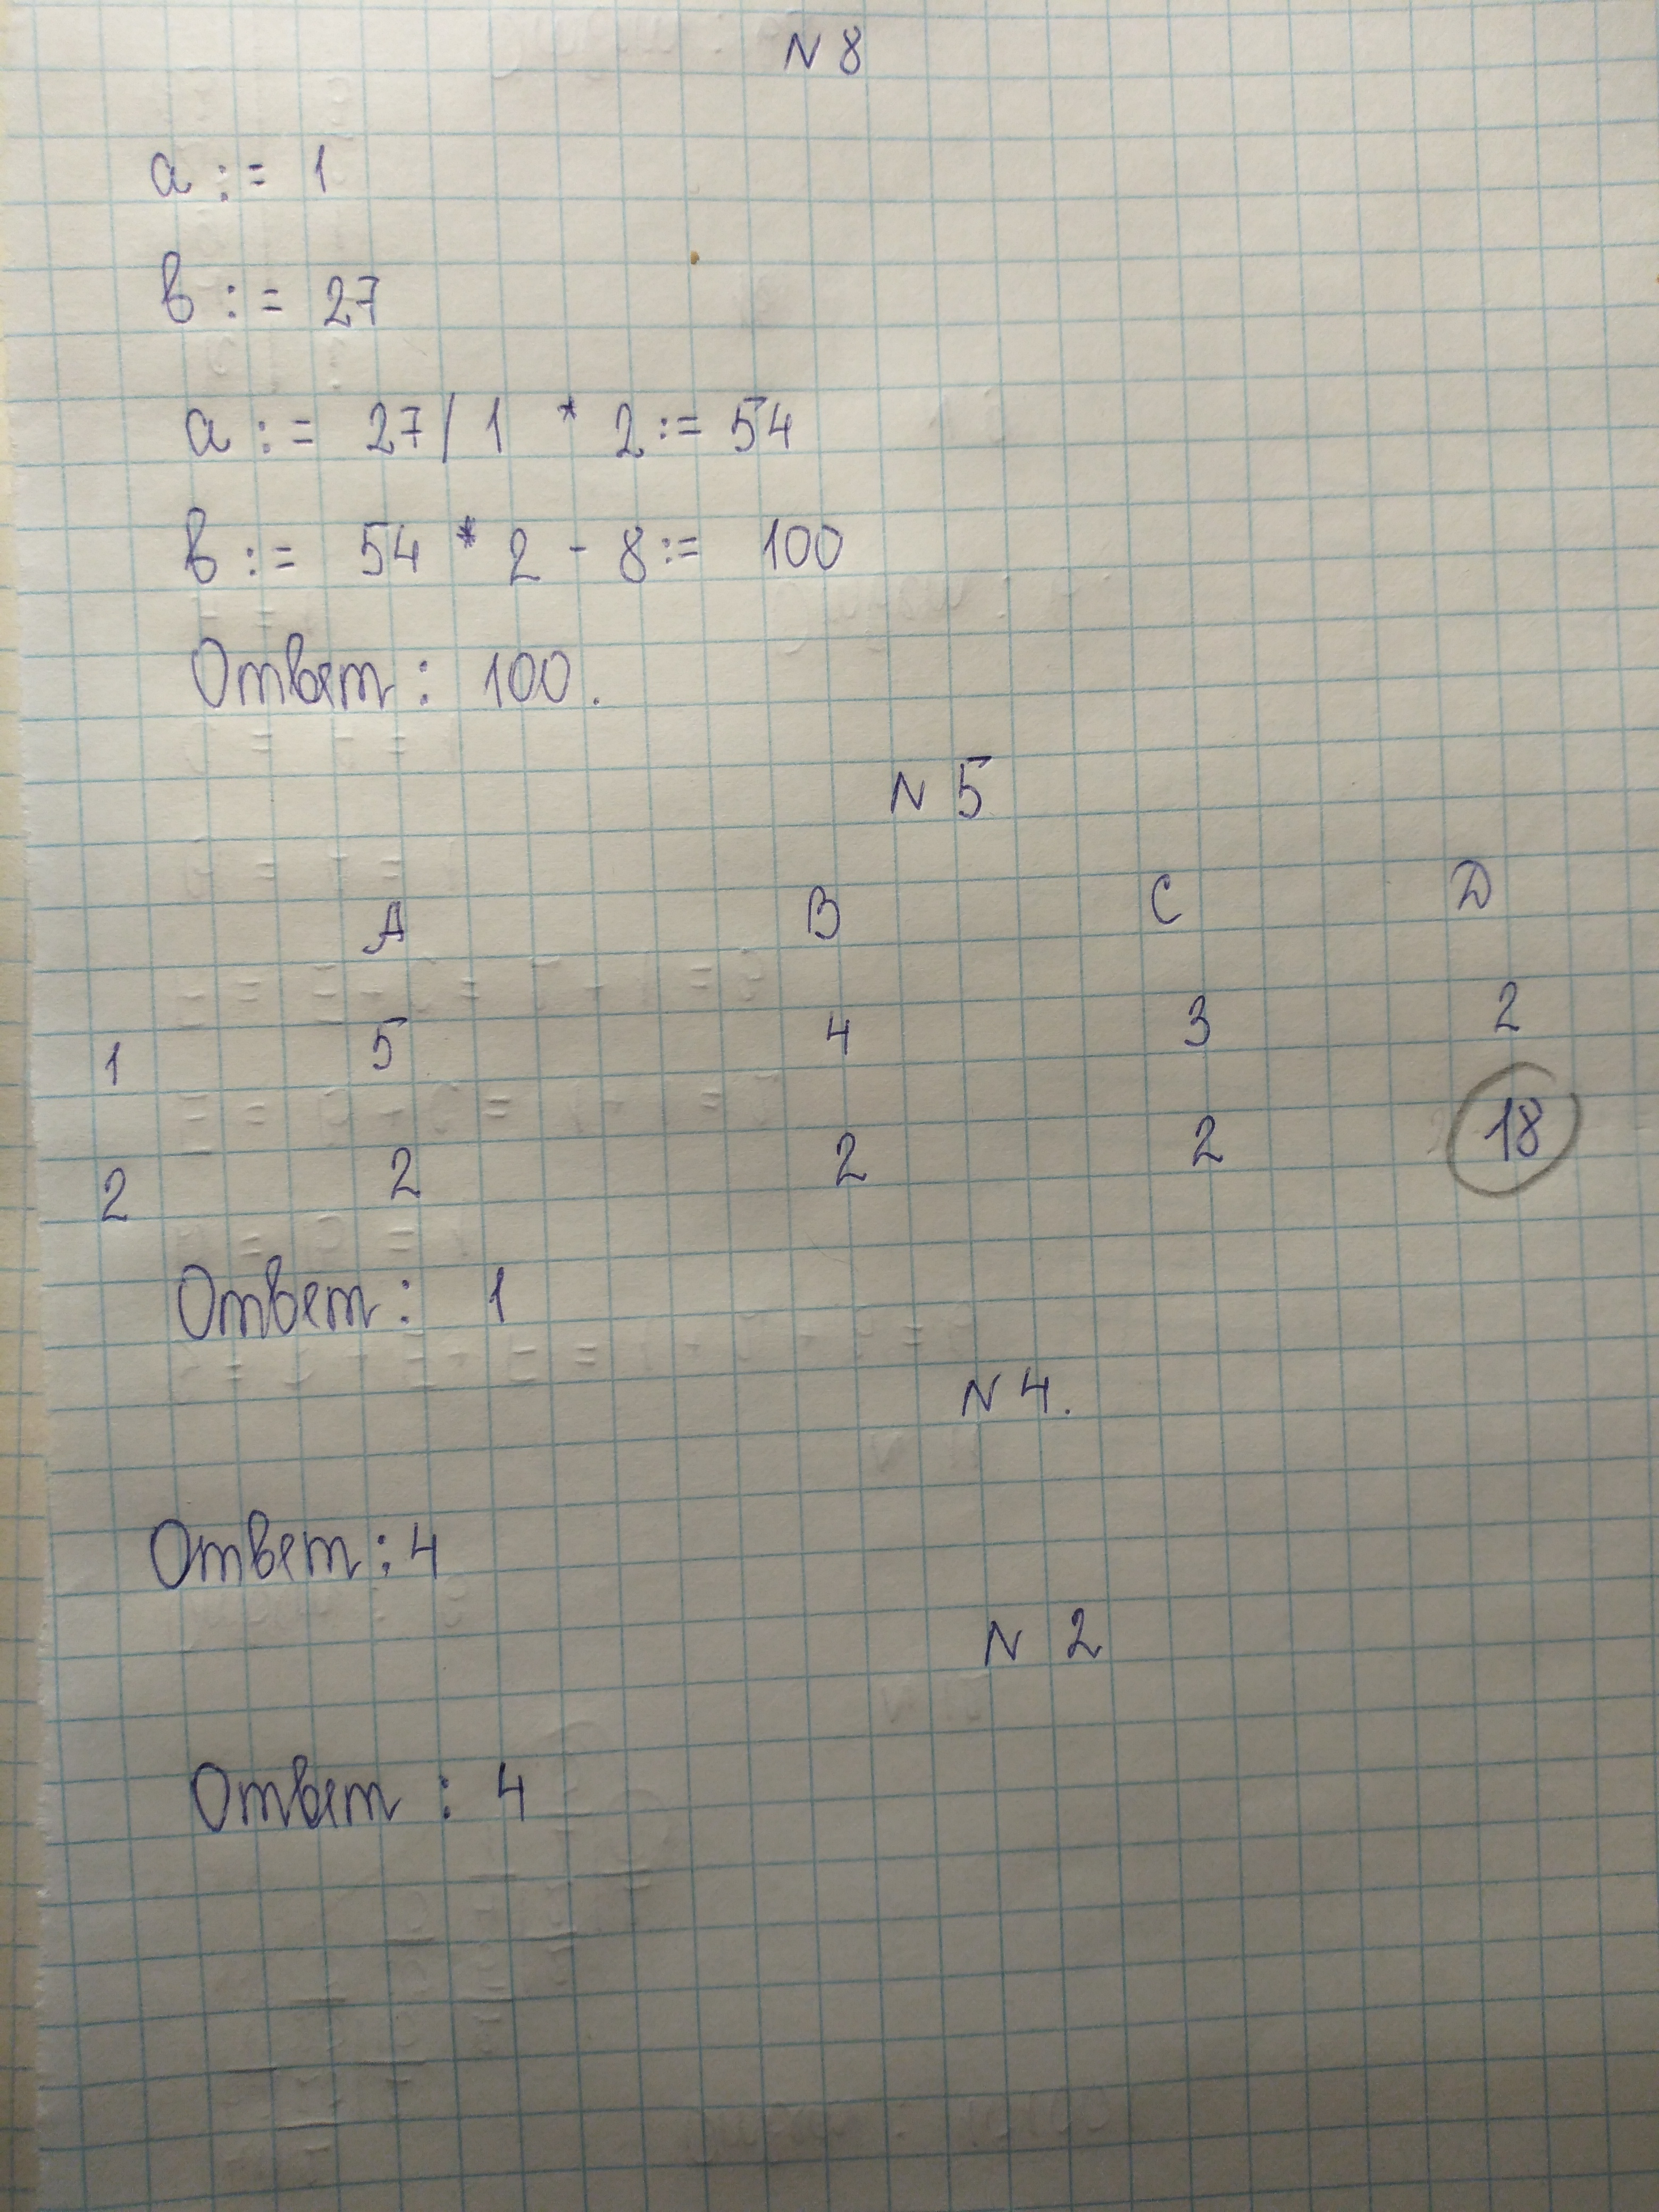 N 8
a := 1
b := 27
a := 27/1 * 2 := 54
b := 54 * 2 - 8 := 100
Ответ: 100.
N 5
A B C D
1 5 4 3 2
2 2 2 2 18
Ответ: 1
N 4.
Ответ: 4
N 2
Ответ: 4